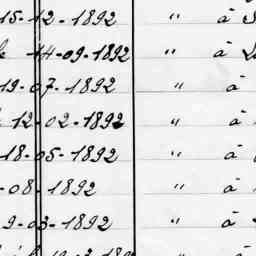 15-12-1892 " à
14-09-1892 " à
19-07-1892 " à
12-02-1892 " à
18-05-1892 " à
-08-1892 " à
9-03-1892 " à